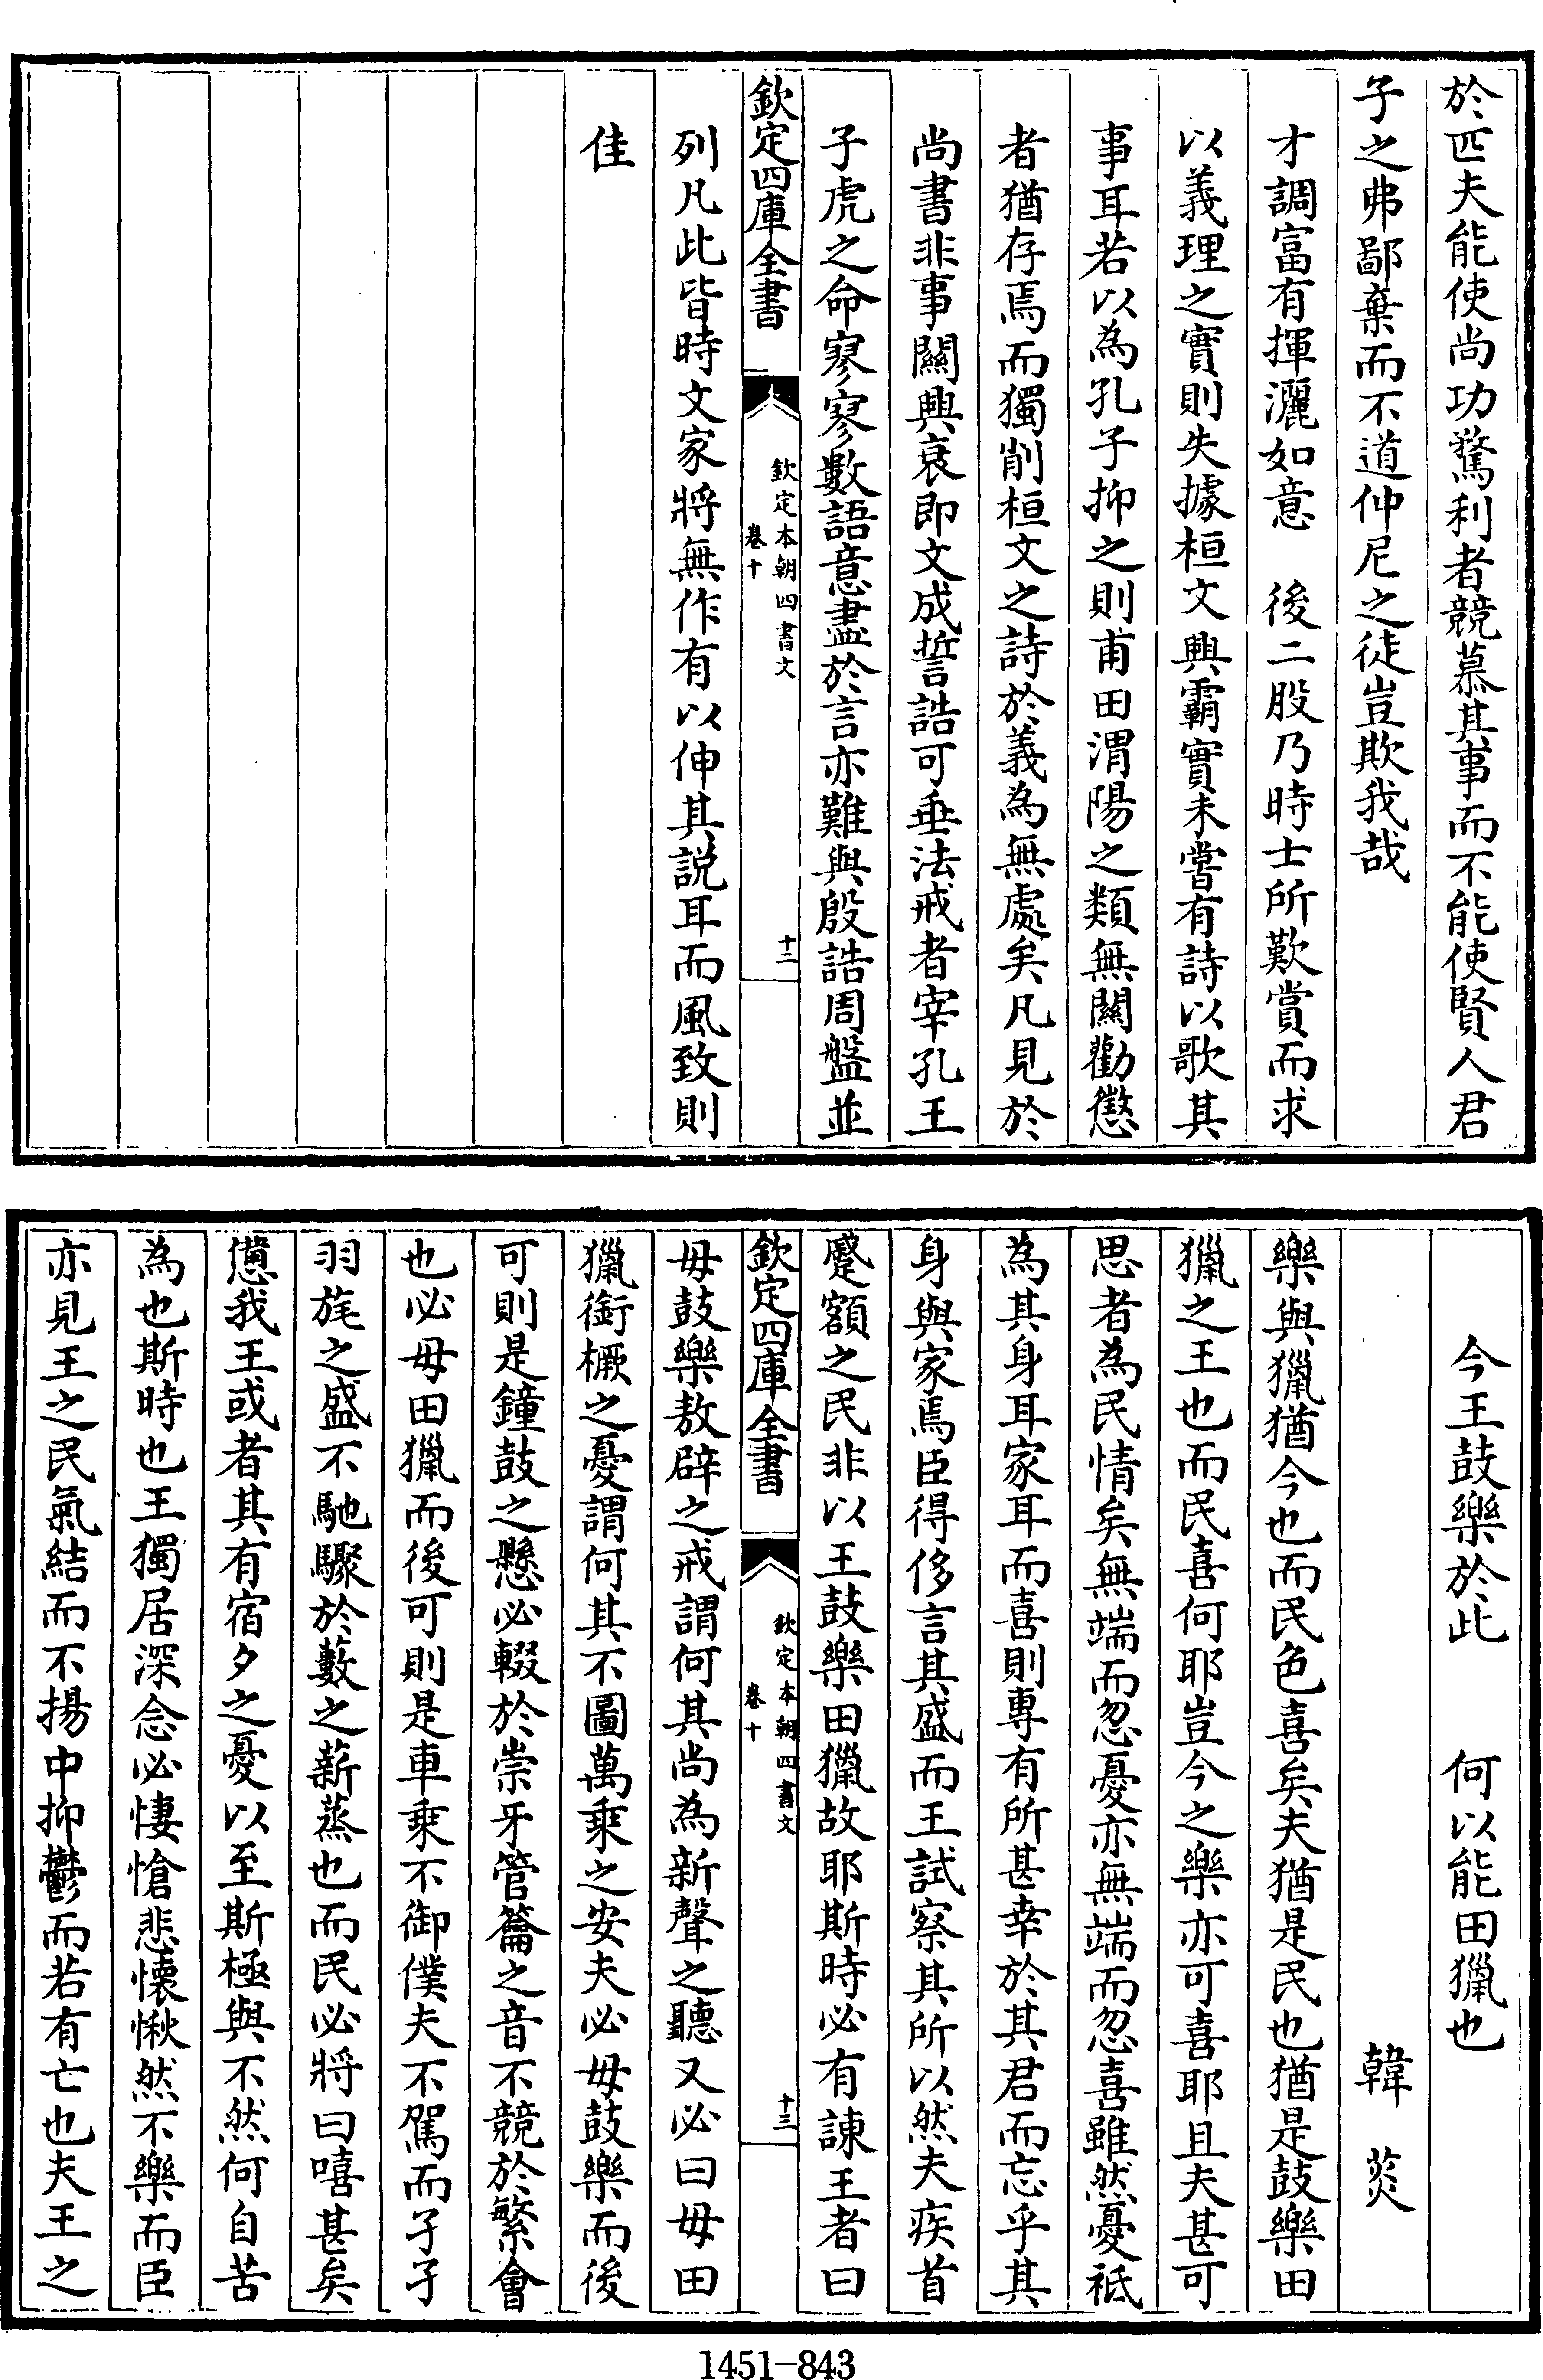 於匹夫能使尚功騖利者競慕其事而不能使賢人君
子之弗鄙棄而不道仲尼之徒豈欺我哉
才調富有揮灑如意　後二股乃時士所歎賞而求
以義理之實則失據桓文興霸實未嘗有詩以歌其
事耳若以為孔子抑之則甫田渭陽之類無關勸懲
者猶存焉而獨削桓文之詩於義為無處矣凡見於
尚書非事關興衰即文成誓誥可垂法戒者宰孔王
子虎之命寥寥數語意盡於言亦難與殷誥周盤並
欽定四庫全書
欽定本朝四書文
卷十
十二
列凡此皆時文家將無作有以伸其說耳而風致則
佳
今王鼓樂於此　何以能田獵也
韓菼
樂與獵猶今也而民色喜矣夫猶是民也猶是鼓樂田
獵之王也而民喜何耶豈今之樂亦可喜耶且夫甚可
思者為民情矣無端而忽憂亦無端而忽喜雖然憂祗
為其身耳家耳而喜則專有所甚幸於其君而忘乎其
身與家焉臣得侈言其盛而王試察其所以然夫疾首
蹙額之民非以王鼓樂田獵故耶斯時必有諫王者曰
欽定四庫全書
欽定本朝四書文
卷十
十三
毋鼓樂敖辟之戒謂何其尚為新聲之聽又必曰毋田
獵銜橛之憂謂何其不圖萬乘之安夫必毋鼓樂而後
可則是鐘鼓之懸必輟於崇牙管籥之音不競於繁會
也必毋田獵而後可則是車乘不御僕夫不駕而孑孑
羽旄之盛不馳驟於藪之薪蒸也而民必將曰嘻甚矣
憊我王或者其有宿夕之憂以至斯極與不然何自苦
為也斯時也王獨居深念必悽愴悲懷愀然不樂而臣
亦見王之民氣結而不揚中抑鬱而若有亡也夫王之
1451-843